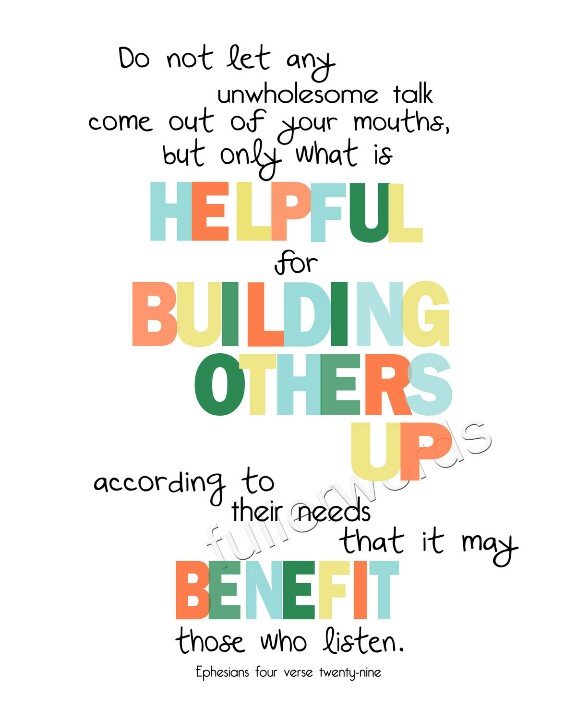 Do not let any
unwholesome talk
come out of your mouths,
but only what is
HELPFUL
for
BUILDING
OTHERS
UP
according to
their needs
that it may
BENEFIT
those who listen.
Ephesians four verse twenty-nine
fullerwords